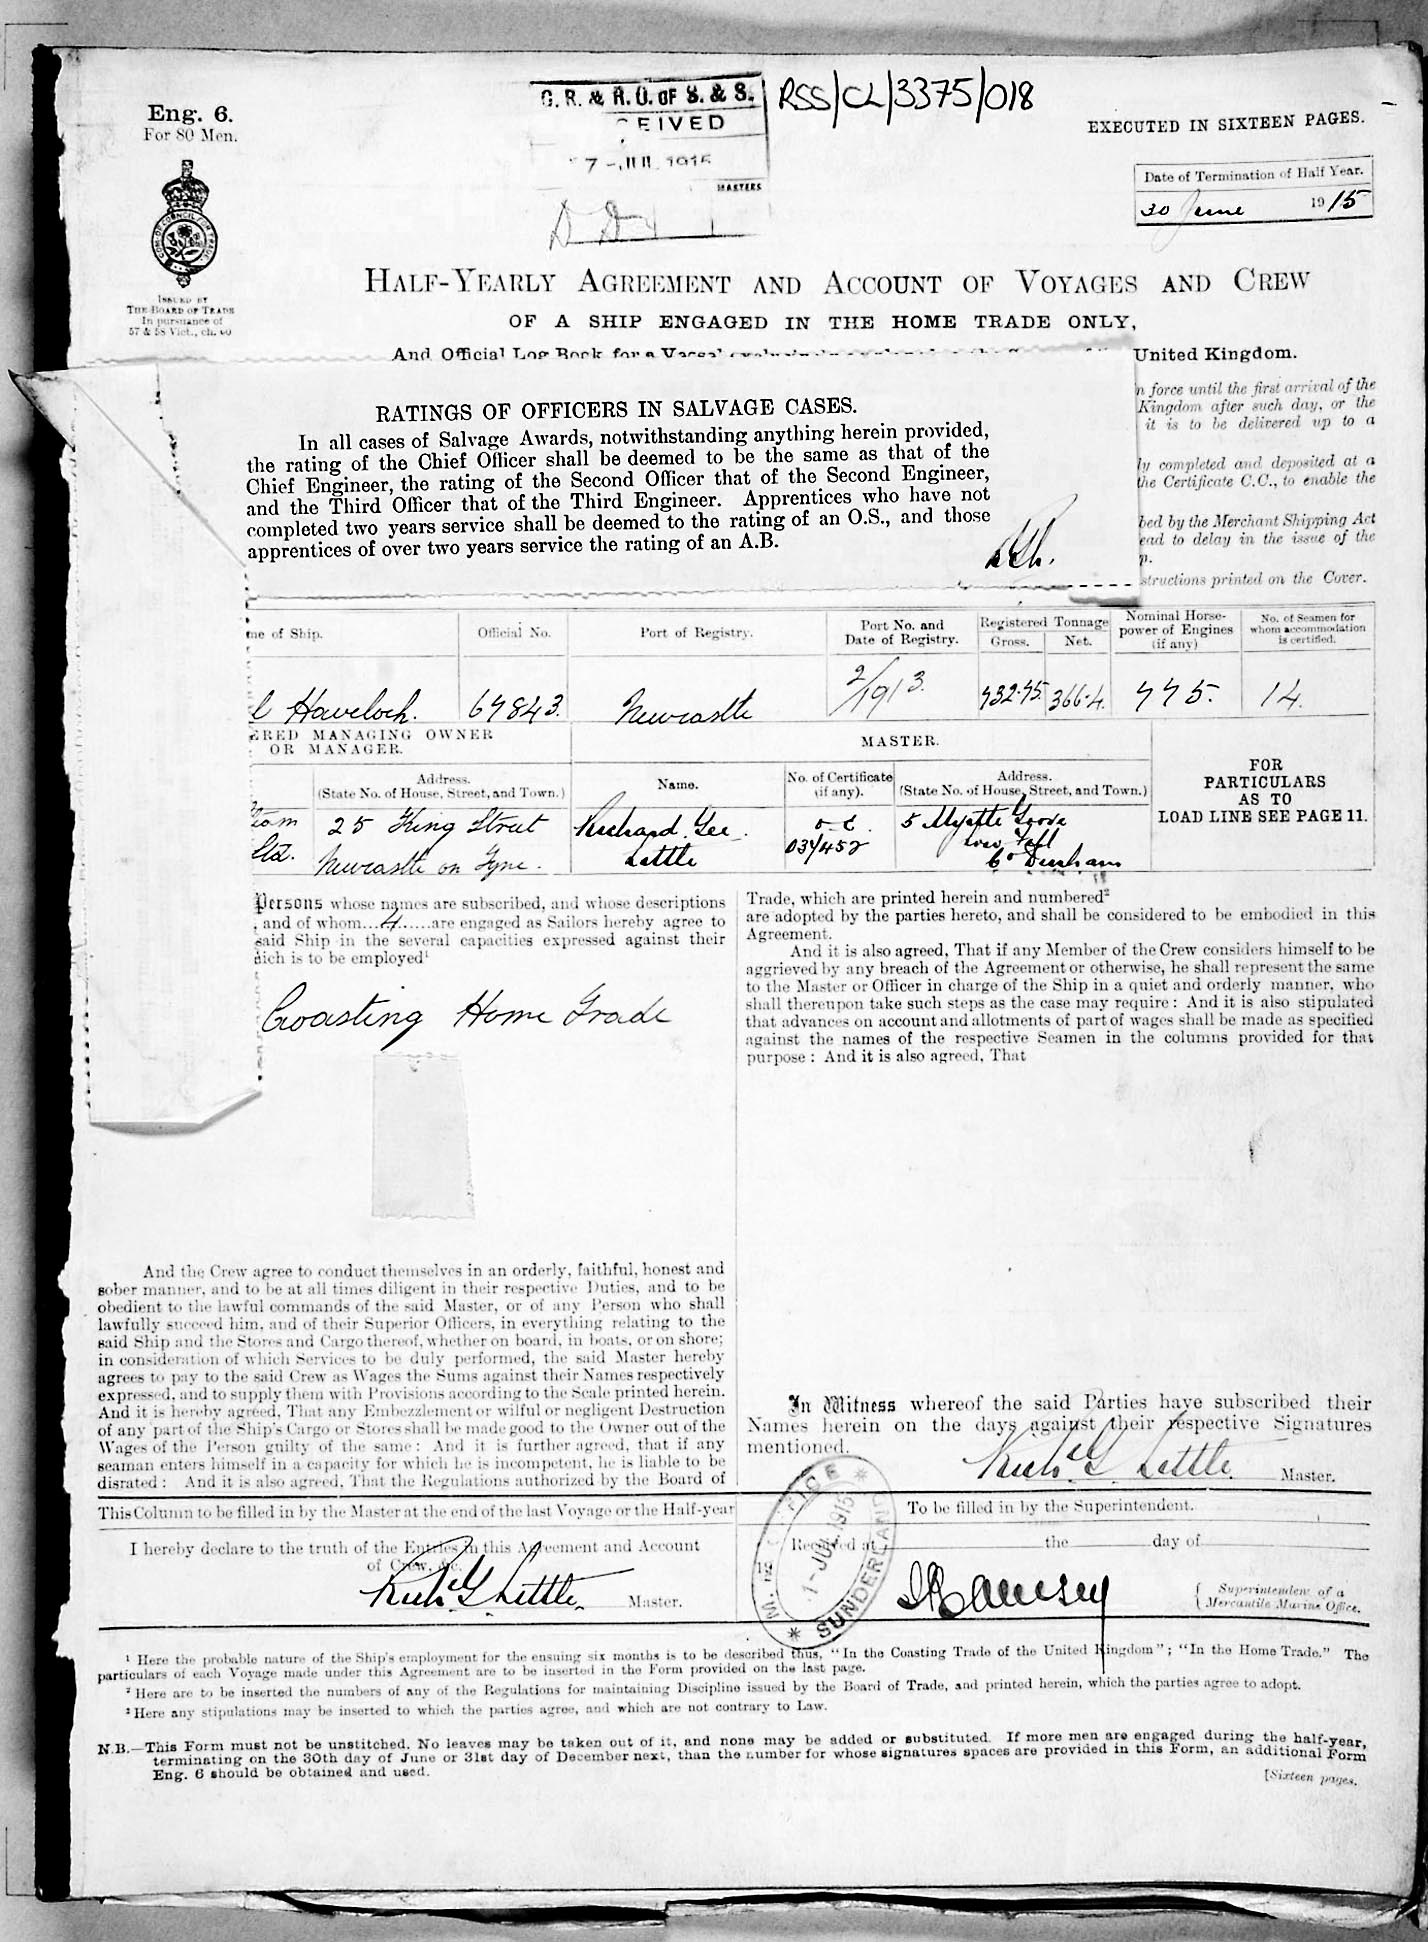 Eng. 6.
For 80 Men.
ISSUED BY
THE BOARD OF TRADE
In pursuance of
57 & 58 Vict., ch. 60
G. R. & R. O. OF S. & S.
CEIVED
7-JUL 1915
MASTERS
RSS/CL/3375/018
EXECUTED IN SIXTEEN PAGES.
Date of Termination of Half Year.
30 June 1915
HALF-YEARLY AGREEMENT AND ACCOUNT OF VOYAGES AND CREW
OF A SHIP ENGAGED IN THE HOME TRADE ONLY,
And Official Log Book for a Vessel United Kingdom.
n force until the first arrival of the
Kingdom after such day, or the
it is to be delivered up to a
ly completed and deposited at a
the Certificate C.C., to enable the
bed by the Merchant Shipping Act
ead to delay in the issue of the
p.
structions printed on the Cover.
RATINGS OF OFFICERS IN SALVAGE CASES.
In all cases of Salvage Awards, notwithstanding anything herein provided,
the rating of the Chief Officer shall be deemed to be the same as that of the
Chief Engineer, the rating of the Second Officer that of the Second Engineer,
and the Third Officer that of the Third Engineer. Apprentices who have not
completed two years service shall be deemed to the rating of an O.S., and those
apprentices of over two years service the rating of an A.B.
me of Ship.
Official No.
Port of Registry.
Port No. and
Date of Registry.
Registered Tonnage
Gross. Net.
Nominal Horse-
power of Engines
(if any)
No. of Seamen for
whom accommodation
is certified.
l Havelock. 67843. Newcastle 2/1913. 732.75 366.4 775. 14.
ERED MANAGING OWNER
OR MANAGER.
MASTER.
Address.
(State No. of House, Street, and Town.)
Name.
No. of Certificate
(if any).
Address.
(State No. of House, Street, and Town.)
FOR
PARTICULARS
AS TO
LOAD LINE SEE PAGE 11.
25 King Street Richard Gee 5 Myrtle Grove
Ltd. Newcastle on Tyne. Little 034452 Low Fell
Co Durham
Persons whose names are subscribed, and whose descriptions
, and of whom...4......are engaged as Sailors hereby agree to
said Ship in the several capacities expressed against their
hich is to be employed¹
Coasting Home Trade
And the Crew agree to conduct themselves in an orderly, faithful, honest and
sober manner, and to be at all times diligent in their respective Duties, and to be
obedient to the lawful commands of the said Master, or of any Person who shall
lawfully succeed him, and of their Superior Officers, in everything relating to the
said Ship and the Stores and Cargo thereof, whether on board, in boats, or on shore;
in consideration of which Services to be duly performed, the said Master hereby
agrees to pay to the said Crew as Wages the Sums against their Names respectively
expressed, and to supply them with Provisions according to the Scale printed herein.
And it is hereby agreed, That any Embezzlement or wilful or negligent Destruction
of any part of the Ship's Cargo or Stores shall be made good to the Owner out of the
Wages of the Person guilty of the same: And it is further agreed, that if any
seaman enters himself in a capacity for which he is incompetent, he is liable to be
disrated: And it is also agreed, That the Regulations authorized by the Board of
Trade, which are printed herein and numbered²
are adopted by the parties hereto, and shall be considered to be embodied in this
Agreement.
And it is also agreed, That if any Member of the Crew considers himself to be
aggrieved by any breach of the Agreement or otherwise, he shall represent the same
to the Master or Officer in charge of the Ship in a quiet and orderly manner, who
shall thereupon take such steps as the case may require: And it is also stipulated
that advances on account and allotments of part of wages shall be made as specified
against the names of the respective Seamen in the columns provided for that
purpose: And it is also agreed, That
In Witness whereof the said Parties have subscribed their
Names herein on the days against their respective Signatures
mentioned.
Richd G Little Master.
This Column to be filled in by the Master at the end of the last Voyage or the Half-year
I hereby declare to the truth of the Entries in this Agreement and Account
of Crew, &c.
Richd G Little Master.
To be filled in by the Superintendent.
Received at the day of
1-JUL 1915
SUNDERLAND
Superintendent of a
Mercantile Marine Office.
¹ Here the probable nature of the Ship's employment for the ensuing six months is to be described thus, "In the Coasting Trade of the United Kingdom"; "In the Home Trade." The
particulars of each Voyage made under this Agreement are to be inserted in the Form provided on the last page.
² Here are to be inserted the numbers of any of the Regulations for maintaining Discipline issued by the Board of Trade, and printed herein, which the parties agree to adopt.
³ Here any stipulations may be inserted to which the parties agree, and which are not contrary to Law.
N.B.—This Form must not be unstitched. No leaves may be taken out of it, and none may be added or substituted. If more men are engaged during the half-year,
terminating on the 30th day of June or 31st day of December next, than the number for whose signatures spaces are provided in this Form, an additional Form
Eng. 6 should be obtained and used.
[Sixteen pages.